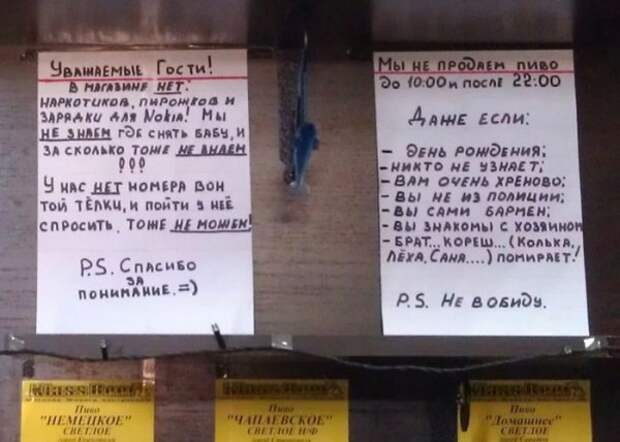 Уважаемые Гости!
В магазине нет:
наркотиков, пирожков и
зарядки для Nokia! Мы
не знаем где снять бабу, и
за сколько тоже не знаем
!!!
У нас нет номера вон
той тёлки, и пойти у неё
спросить, тоже не можем!
P.S. Спасибо
за
понимание. =)
Мы не продаем пиво
до 10:00 и после 22:00
Даже если:
- День рождения;
- Никто не узнает;
- Вам очень хреново;
- Вы не из полиции;
- Вы сами бармен;
- Вы знакомы с хозяином
- Брат... Кореш... (Колька,
Лёха, Саня....) помирает!
P.S. Не в обиду.
Пиво
"НЕМЕЦКОЕ"
СВЕТЛОЕ
Пиво
"ЧАПАЕВСКОЕ"
СВЕТЛОЕ Н/Ф
Пиво
"Домашнее"
СВЕТЛОЕ